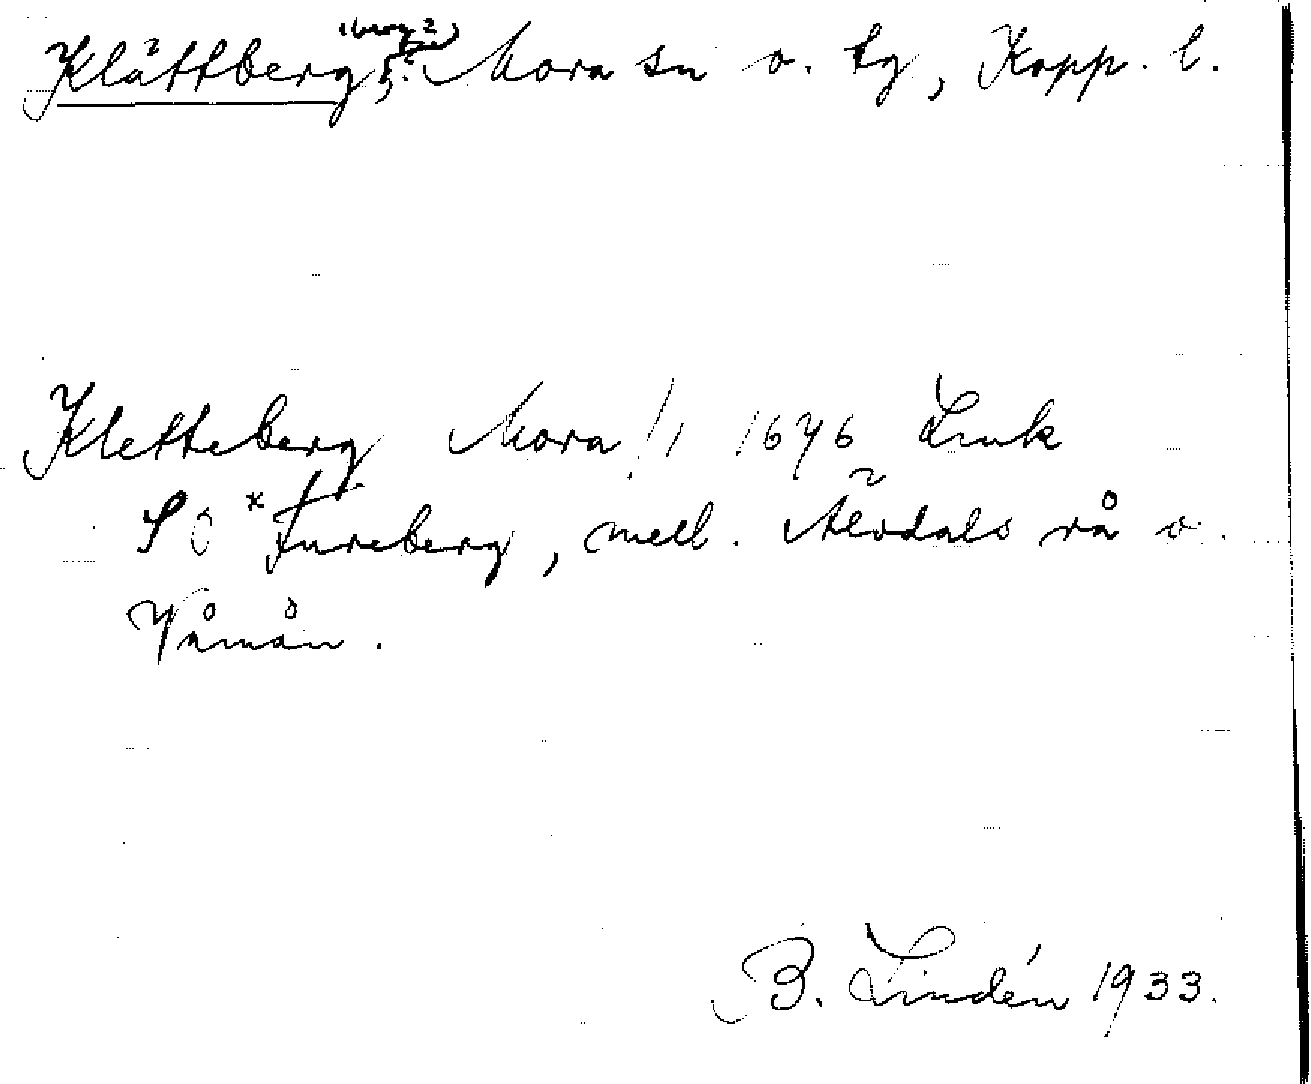 Klättberg, (berg?) Mora sn o. tg, Kopp. l.
Kletteberg Mora 1/1 1646 Lmk
SO *Fureberg, mell. Älvdals rå o.
Våmån.
B. Lindén 1933.